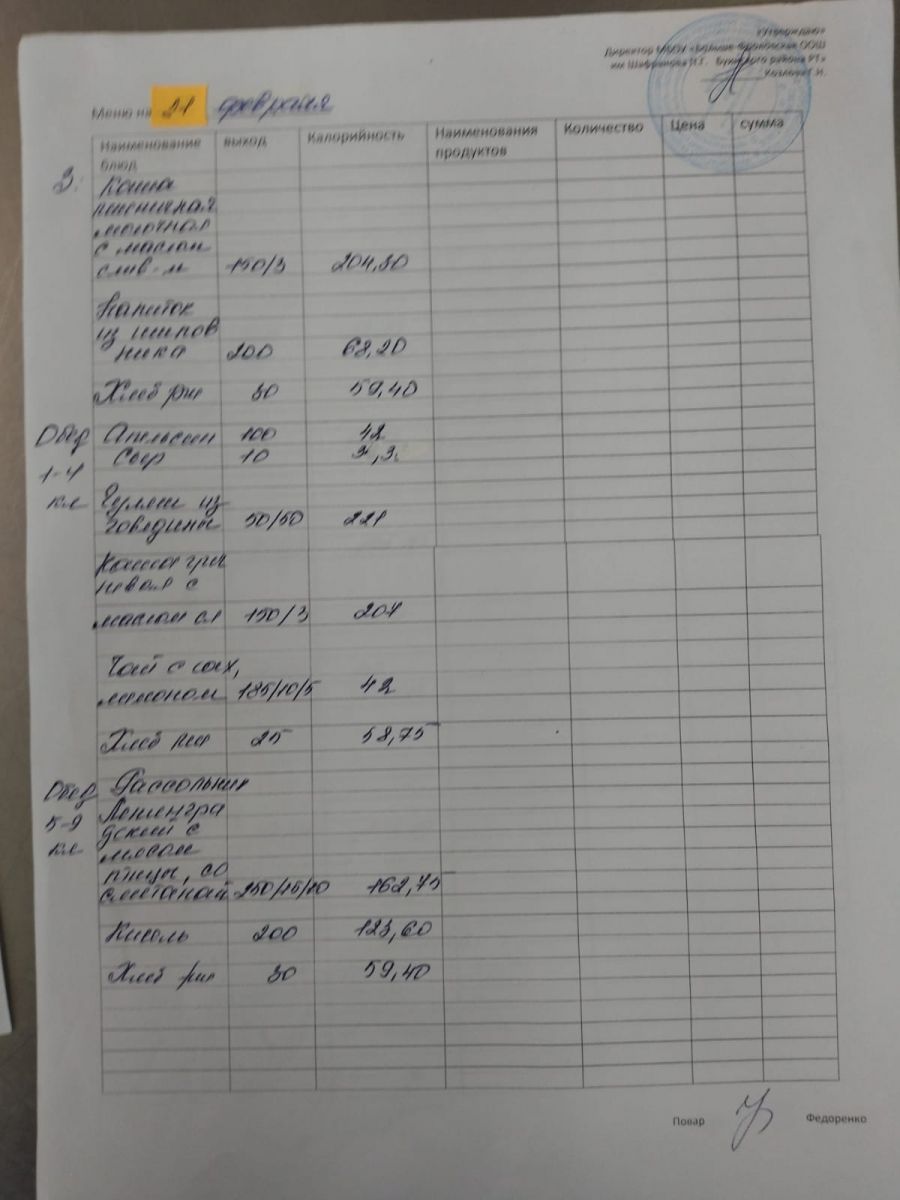 «Утверждаю»
Директор МБОУ «Больше-Фроловская ООШ
им Шафранова П.Г. Буинского района РТ»
Козлова Г.И.
Меню на 21 февраля
Наименование блюд выход Калорийность Наименования продуктов Количество Цена сумма
З. Каша
пшеничная
молочная
с маслом
слив-м 150/3 204,30
Напиток
из шипов
ника 200 68,20
Хлеб рж 30 59,40
Обед Апельсин 100 42
Сыр 10
1-4
кл Гуляш из
говядины 50/50 221
Каша греч
невая с
маслом сл 150/3 204
Чай с сах,
лимоном 185/10/5 42
Хлеб рж 25 58,75
Обед Рассольник
5-9 Ленингра
дский с
кл мясом
птицы, со
сметаной 250/15/10 162,75
Кисель 200 123,60
Хлеб рж 30 59,40
Повар Федоренко